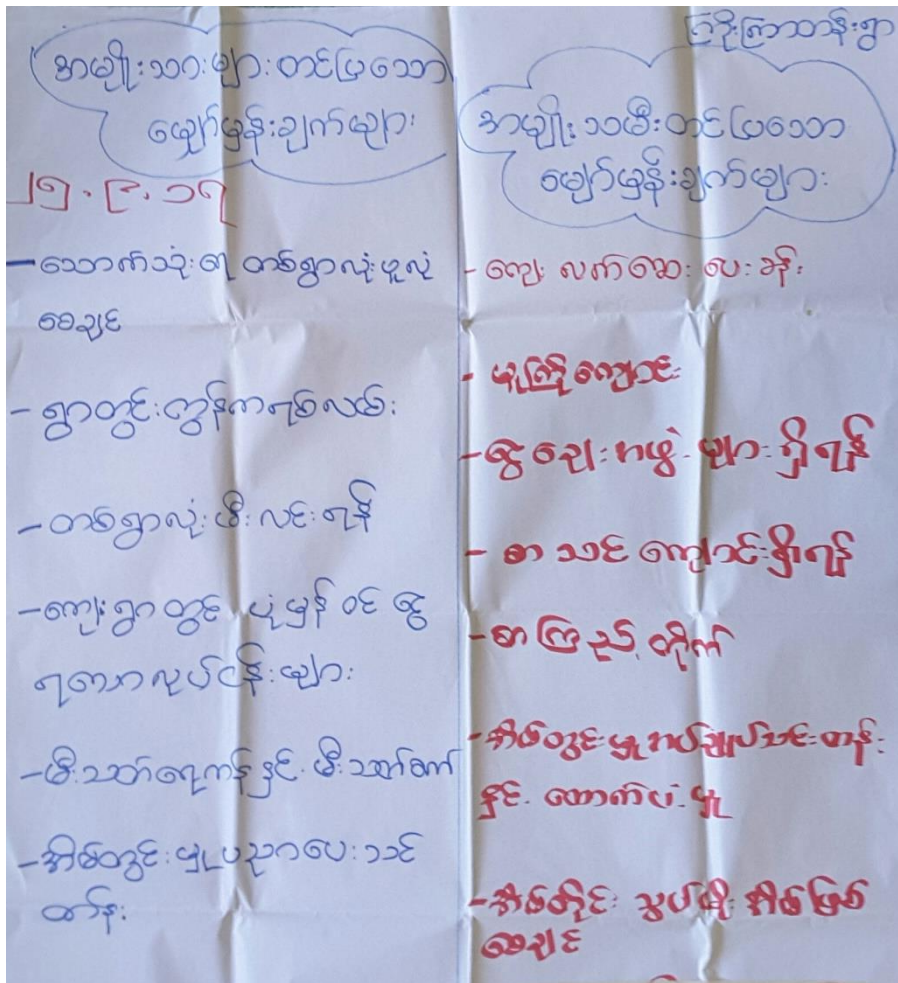 အမျိုးသားများ တင်ပြသော
မျှော်မှန်းချက်များ
၂၅.၉.၁၇
- သောက်သုံးရေ တစ်ရွာလုံးဖူလုံ
စေချင်
- ရွာတွင်း ကွန်ကရစ်လမ်း
- တစ်ရွာလုံး မီးလင်းရန်
- ကျေးရွာတွင် ပုံမှန် ဝင်ငွေ
ရသောလုပ်ငန်းများ
- မီးသတ်ရေကန်နှင့် မီးသတ်စက်
- အိမ်တွင်းမှုပညာပေးသင်
တန်း
ကြာတန်းရွာ
အမျိုးသမီးတင်ပြသော
မျှော်မှန်းချက်များ
- ကျေးလက်ဆေးပေးခန်း
- မူကြိုကျောင်း
- ငွေချေးအဖွဲ့များရှိရန်
- စာသင်ကျောင်းရှိရန်
- စာကြည့်တိုက်
- အိမ်တွင်းမှုအပ်ချုပ်သင်တန်း
နှင့် ထောက်ပံ့မှု
- အိမ်တိုင်း သွပ်မိုးအိမ်ဖြစ်
စေချင်